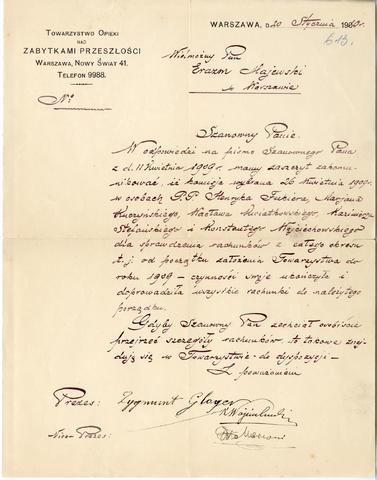 TOWARZYSTWO OPIEKI
NAD
ZABYTKAMI PRZESZŁOŚCI
WARSZAWA, NOWY ŚWIAT 41.
TELEFON 9988.
№
WARSZAWA, d. 20 Stycznia 19 r.
Wielmożny Pan
Erazm Majewski
w Warszawie
Szanowny Panie.
W odpowiedzi na pismo Szanownego Pana
z d. 11 Kwietnia 1909. mamy zaszczyt zakomu-
nikować, iż komisja wybrana 26 Kwietnia 1909.
w osobach P.P. Henryka Fukiera, Marjana
Kuczyńskiego, Wacława Kwiatkowskiego, Kazimierza
Stefańskiego i Konstantego Wojciechowskiego
dla sprawdzenia rachunków z całego okresu
t. j. od początku założenia Towarzystwa do
roku 1909 – czynności swoje ukończyła i
doprowadziła wszystkie rachunki do należytego
porządku.
Gdyby Szanowny Pan zechciał osobiście
przejrzeć szczegóły rachunków, to takowe znaj-
dują się w Towarzystwie do dyspozycji –
Z poważaniem
Prezes: Zygmunt Gloger
Vice-Prezes: